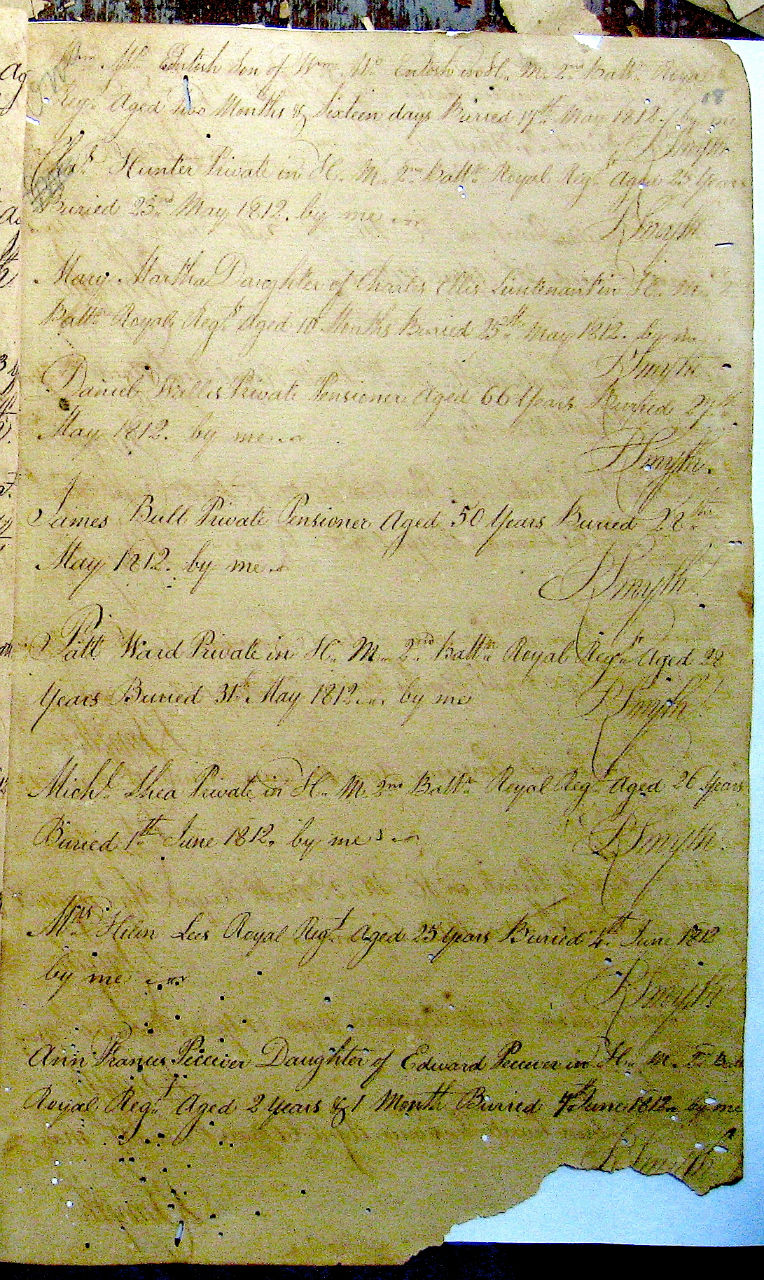 Wm. Mc. Entosh Son of Wm. Mc. Entosh in H. M. 2nd Battn. Royal
Regt. Aged two Months & Sixteen days Buried 17th May 1812. by me
Smyth
Chas. Hunter Private in H. M. 2nd Battn. Royal Regt. Aged 25 Years
Buried 23rd May 1812. by me
Smyth
Mary Martha Daughter of Charles Ellis Lieutenant in H. M. 2
Battn. Royals Regt. Aged 10 Months Buried 25th May 1812. by me
Smyth
Daniel Wallis Private Pensioner Aged 66 Years Buried 27th
May 1812. by me
Smyth.
James Bull Private Pensioner Aged 50 Years Buried 28th
May 1812. by me
Smyth
Patt Ward Private in H. M. 2nd Battn. Royal Regt. Aged 28
Years Buried 31st May 1812 by me
Smyth
Michl. Shea Private in H. M. 2nd Battn. Royal Regt. Aged 26 Years
Buried 1st June 1812. by me
Smyth.
Mrs. Helen Lees Royal Regt. Aged 25 Years Buried 4th June 1812
by me
Smyth
Ann Frances Daughter of Edward in H. M. 2d Batt
Royal Regt. Aged 2 Years & 1 Month Buried 7th June 1812. by me
Smyth